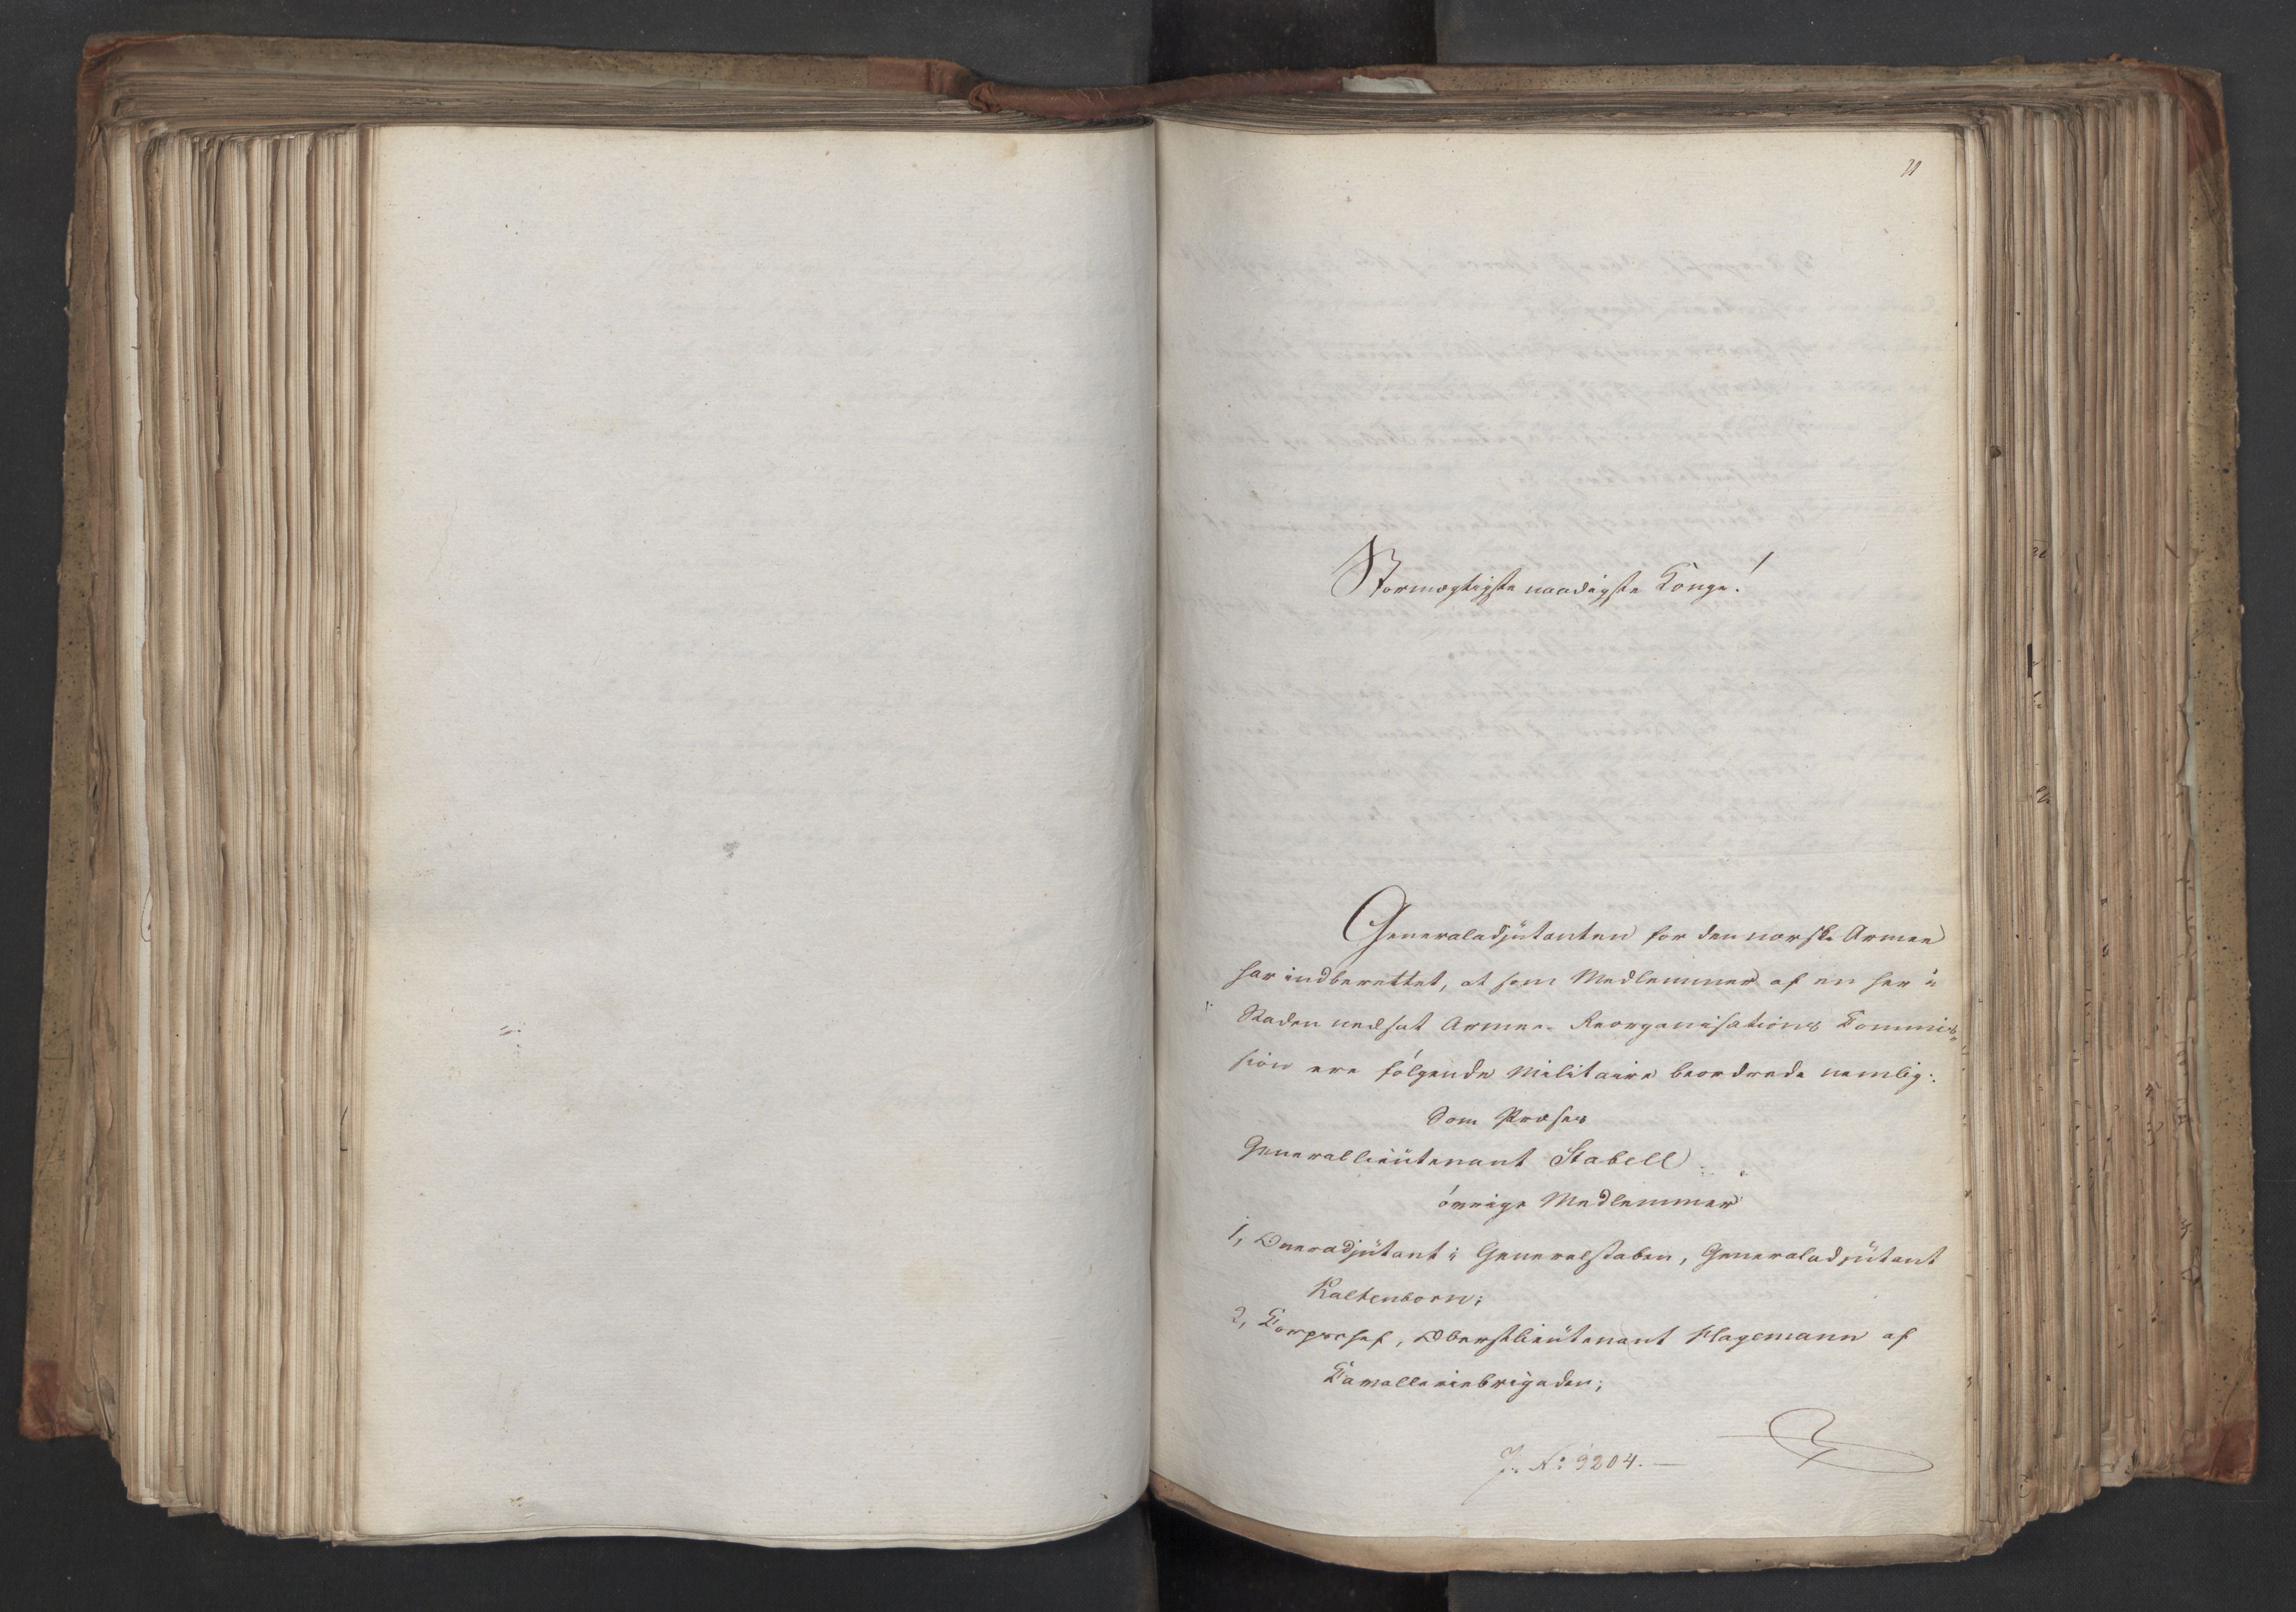 Stormægtigste naadigste Konge!
Generaladjütanten for den norske Armee
har indberettet, at som Medlemmer af en her i
Staden nedsat Armee-Reorganisations Kommis-
sion ere følgende Militaire beordrede nemlig:
Som Præses
Generallieütenant Stabell
øvrige Medlemmer
1, Overadjütant i Generalstaben, Generaladjütant
Kaltenborn;
2, Korpschef, Oberstlieütenant Hagemann af
Kavalleriebrigaden;
J. No 9204.